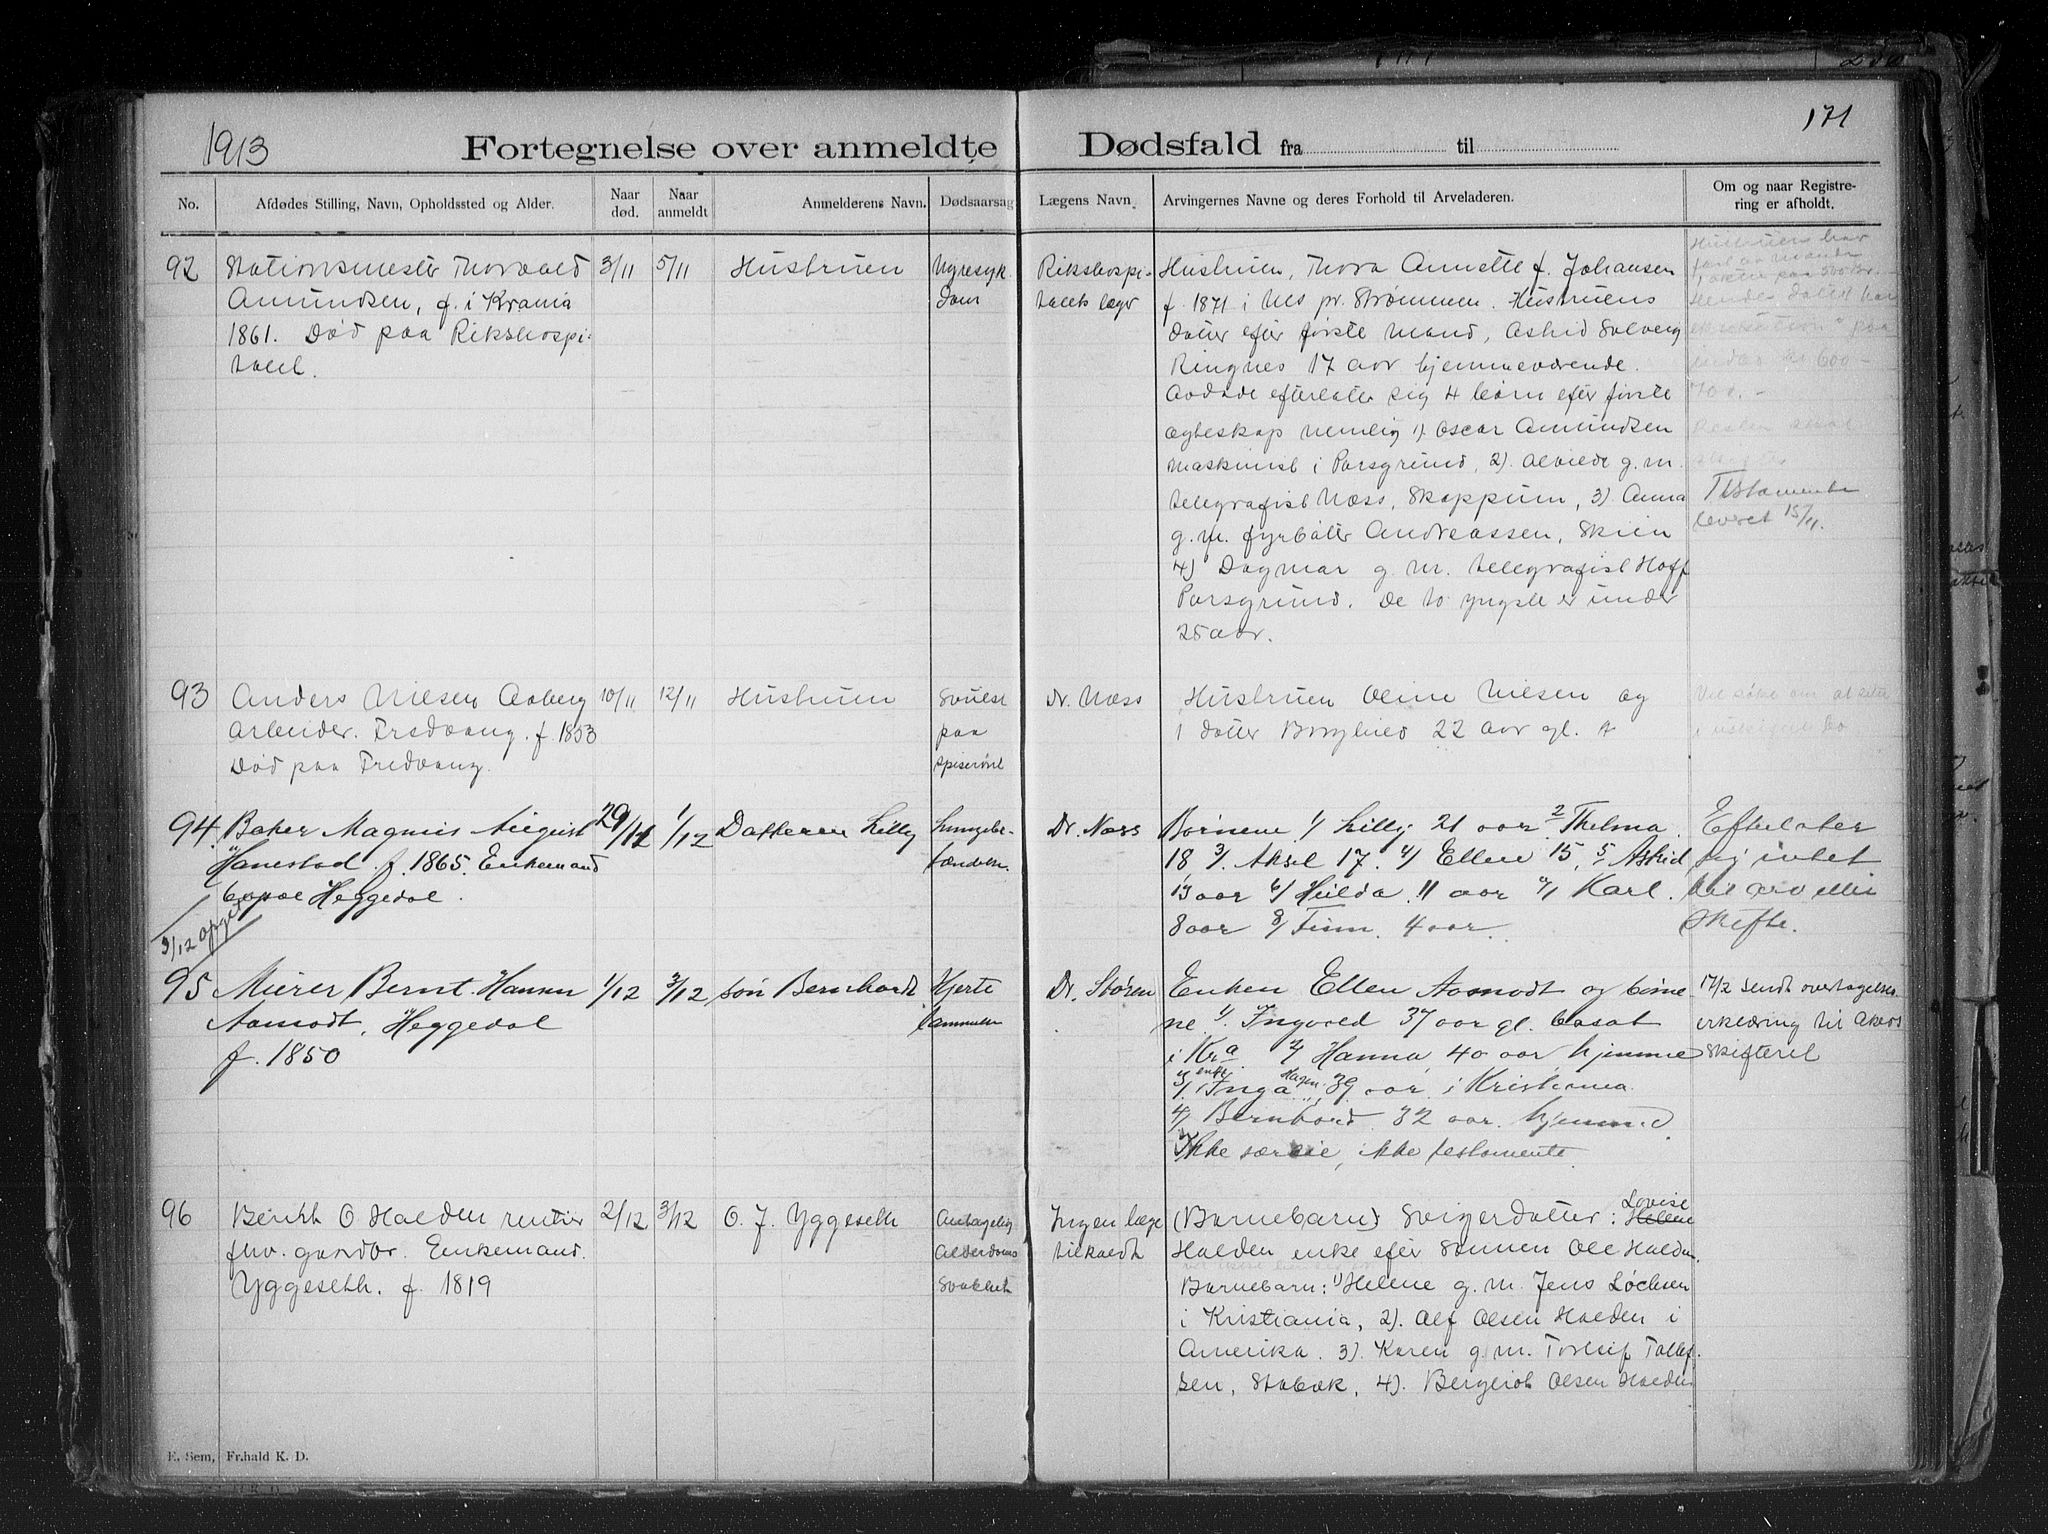 1913 Fortegnelse over anmeldte Dødsfald fra til 171
No. Afdødes Stilling, Navn, Opholdssted og Alder. Naar død. Naar anmeldt Anmelderens Navn. Dødsaarsag Lægens Navn Arvingernes Navne og deres Forhold til Arveladeren. Om og naar Registrering er afholdt.
92 Stationsmester Thorvald
Amundsen, f. i Krania
1861. Død paa Rikshospi-
talet.
3/11 5/11 Hustruen
Nyresyk
dom
Rikshospi-
talets læger
Hustruen, Thora Annette f. Johansen
f. 1871 i Nes pr. Strømmen. Hustruens
datter efter første mand, Astrid Solveig
Ringnes 17 aar hjemmeværende.
Avdøde efterlater sig 4 børn efter første
egteskap nemlig 1). Oscar Amundsen
maskinist i Porsgrund, 2). Alvilde g. m.
telegrafist Næss, Skoppum, 3) Anna
g. m. fyrbøter Andreassen, Skien
4) Dagmar g. m. telegrafist Hoff
Porsgrund. De to yngste er under
25 aar.
Hustruen har
Testamente
levert 15/11.
93 Anders Nilsen Aaberg
Arbeider. Fredvang. f. 1853
Død paa Fredvang.
10/11 12/11 Hustruen
Svulst
paa
spiserøret
Dr. Næss
Hustruen Oline Nilsen og
1 datter Borghild 22 aar gl.
Vil søke om at sitte
i uskiftet bo
94. Baker Magnus August
Hanestad f. 1865. Enkemand
bopæl Heggedal.
29/11 1/12 Datteren Lilly
Lungebe-
tændelse.
Dr. Næss
Børnene 1/ Lilly 21 aar 2 Thelma
18 3/ Aksel 17. 4/ Ellen 15, 5/ Astrid
13 aar 6/ Hulda 11 aar 7/ Karl.
8 aar 8/ Finn. 4 aar.
Efterlater
sig intet
til arv eller
skifte.
9/12 opgit
95 Murer Bernt Hansen
Aamodt, Heggedal
f. 1850
1/12 3/12 søn Bernhardt
Hjerte
lammelse
Dr. Støren
Enken Ellen Aamodt og børne-
ne 1/. Ingvald 37 aar gl. bosat
i Kra 2/ Hanna, 40 aar, hjemme
3/. enke Inga Hagen 39 aar i Kristiania
4/ Bernhard 32 aar. hjemme.
Ikke særeie, ikke testamente.
17/2 sendt overtagelses-
erklæring til Akers
skifteret
96 Berthe O Halden rentier
fhv. gardbr. Enkemand.
Yggeseth. f. 1819
2/12 3/12 O. J. Yggeseth
Antagelig
Alderdoms
svakhet
Ingen læge
tilkaldt
(Barnebarn) Svigerdatter: Lovise Helene
Halden enke efter sønnen Ole Halden.
Barnebarn: 1) Helene g. m. Jens Lochsen
i Kristiania, 2). Alf Olsen Halden i
Amerika. 3). Karen g. m. Torleif Tollef-
sen, Stabæk, 4). Bergliot Olsen Halden
E. Sem, Fr.hald K. D.